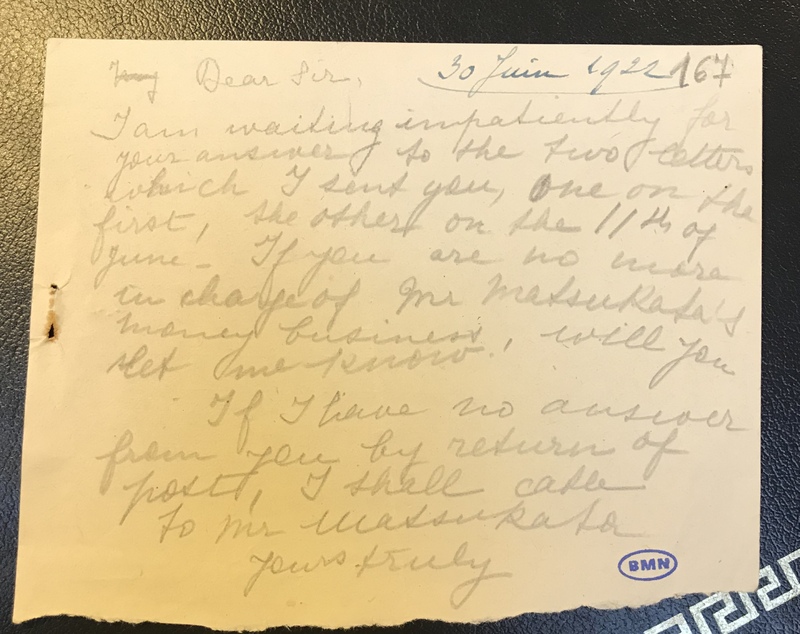 Dear Sir,
30 Juin 1922
167
I am waiting impatiently for
your answer to the two letters
which I sent you, one on the
first, the other on the 11th of
June - If you are no more
in charge of Mr Matsukata's
money business, will you
let me know.
If I have no answer
from you by return of
post, I shall cable
to Mr Matsukata
yours truly
BMN